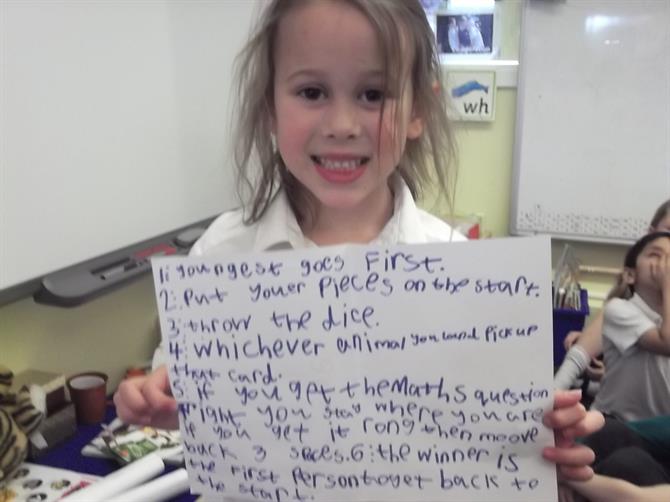 1: youngest goes First.
2: Put youer Pieces on the start.
3: throw the dice.
4: whichever animal you land Pick up
that card.
5: if you get the Maths question
right you stay where you are
if you get it rong then moove
back 3 speces. 6: the winner is
the First Person to get back to
the start.
wh